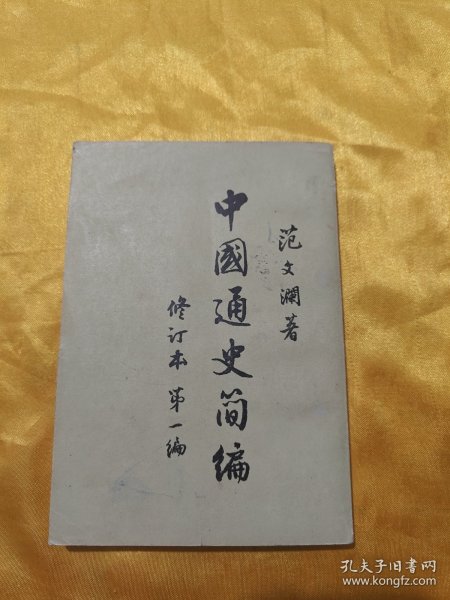 范文瀾著
中國通史简編
修订本 第一編
孔夫子旧书网
www.kongfz.com